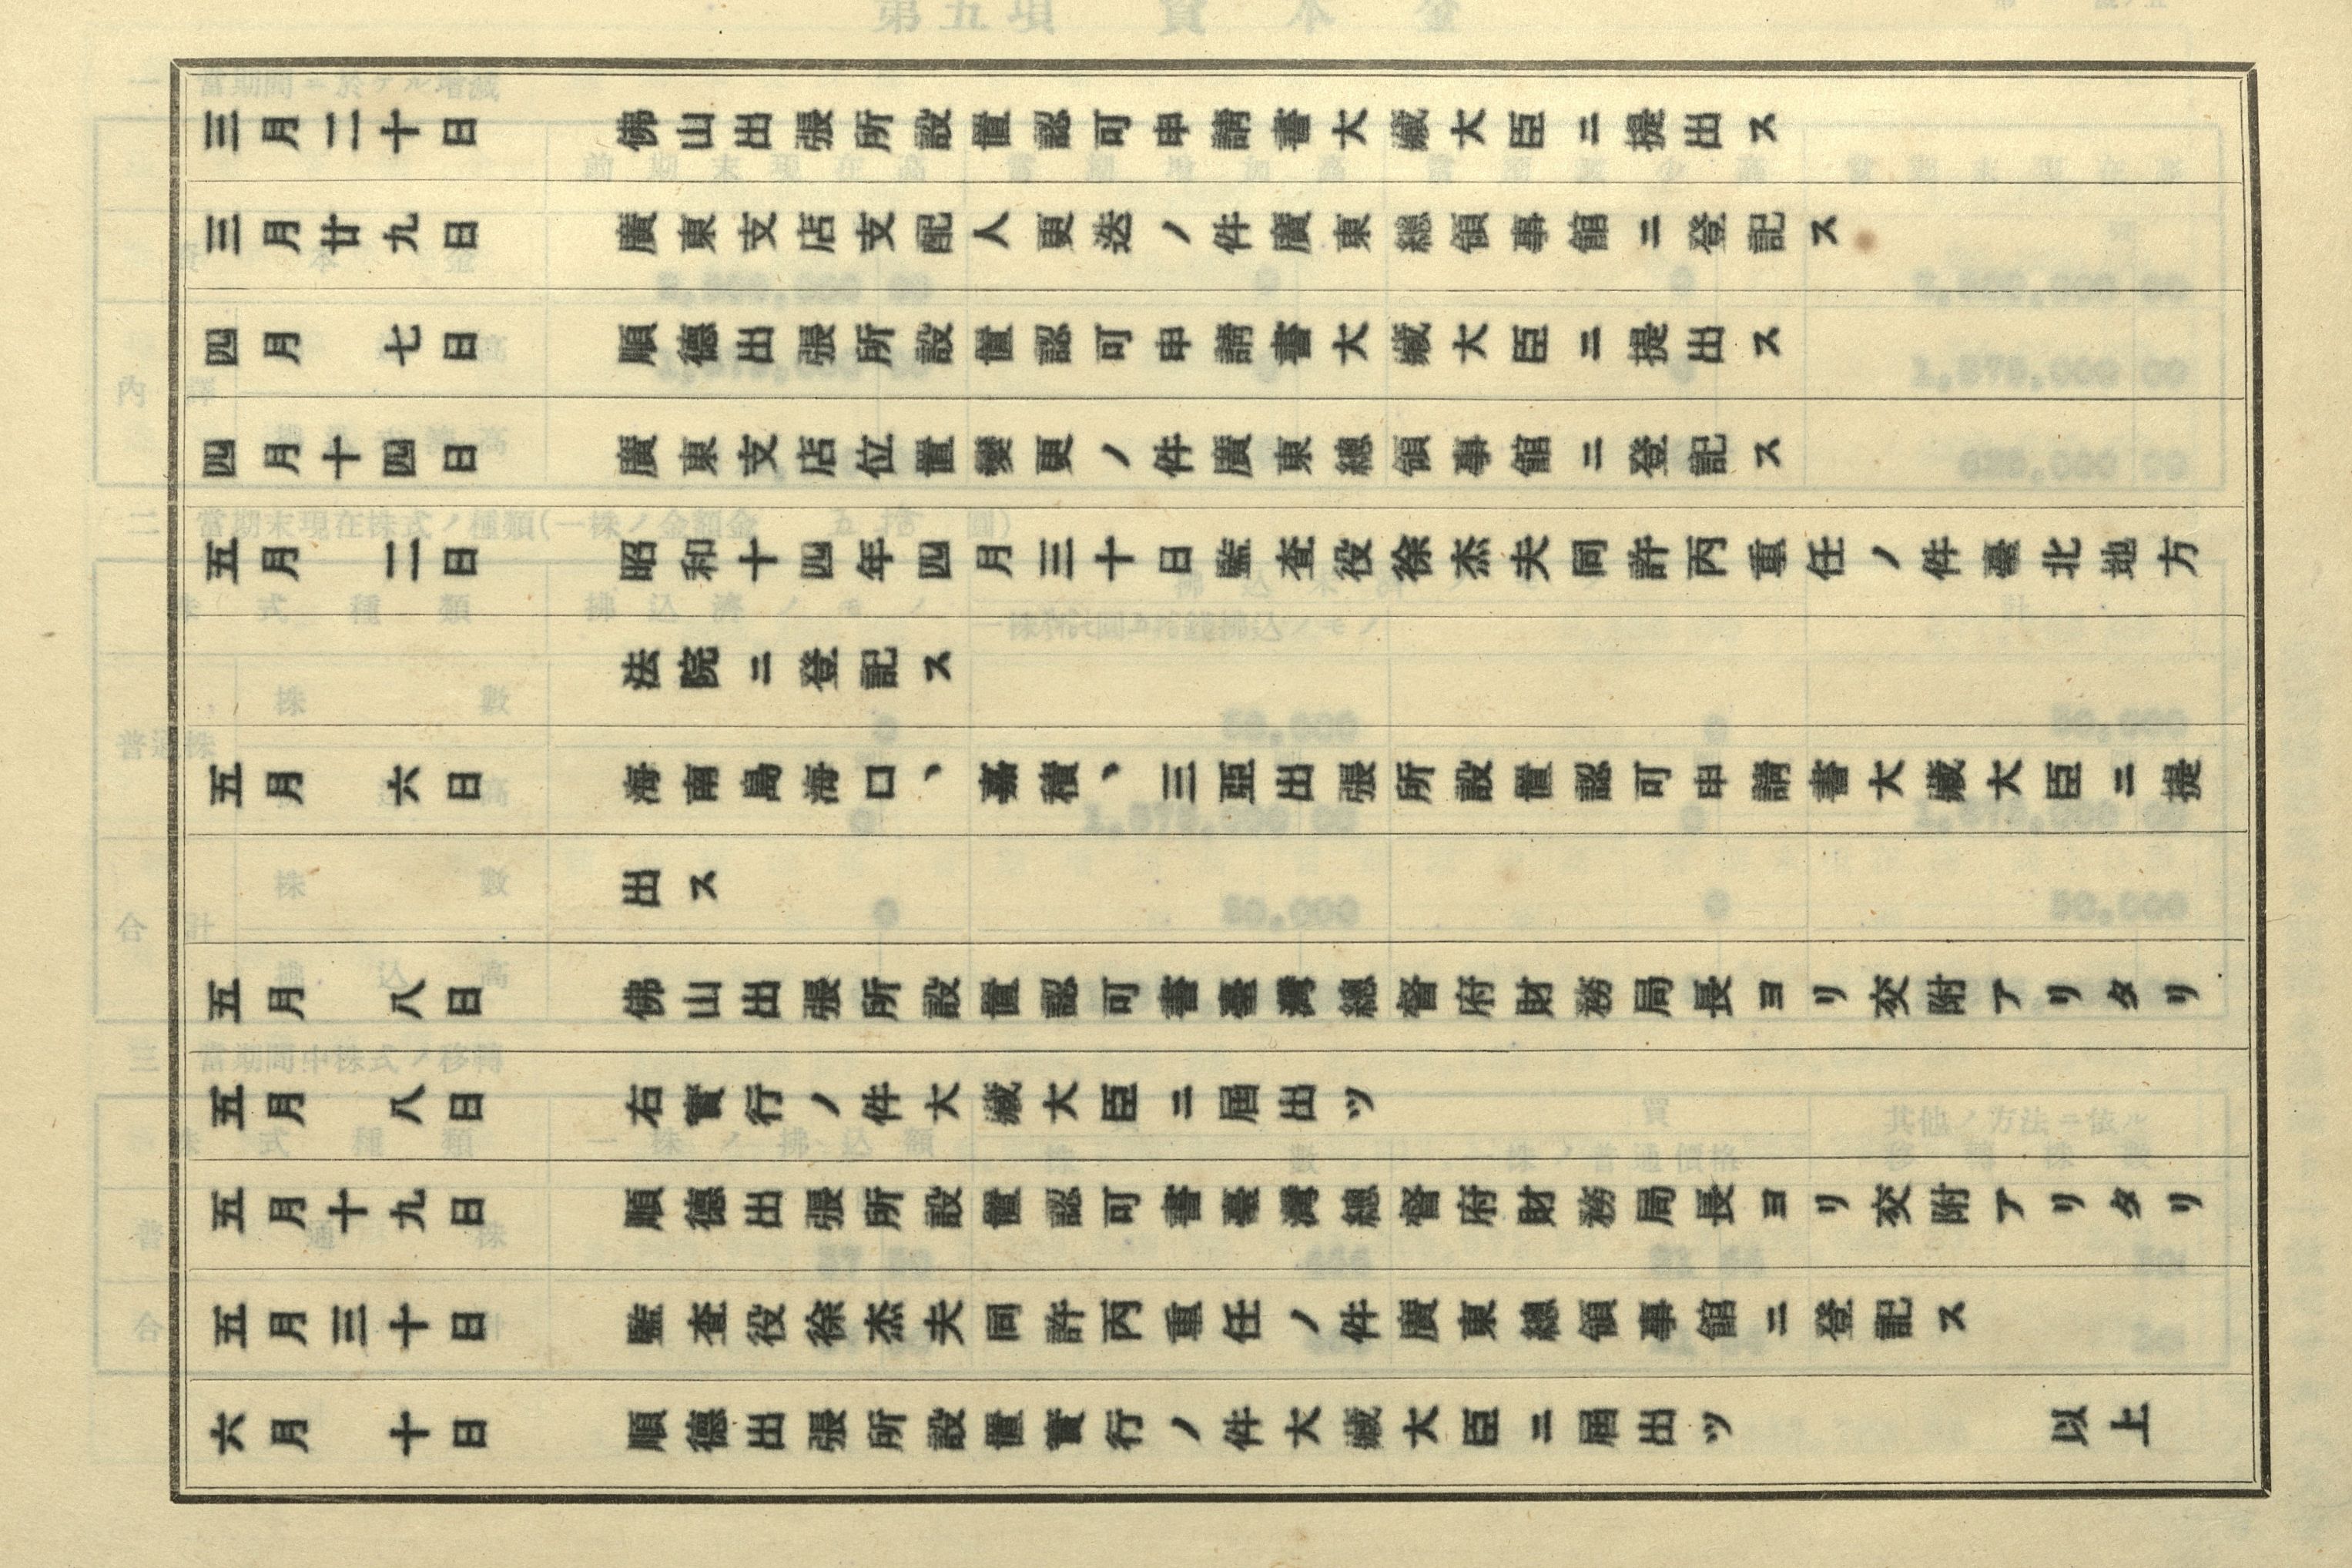 三月二十日　佛山出張所設置認可申請書大藏大臣ニ提出ス
三月廿九日　廣東支店支配人更迭ノ件廣東總領事館ニ登記ス
四月七日　順德出張所設置認可申請書大藏大臣ニ提出ス
四月十四日　廣東支店位置變更ノ件廣東總領事館ニ登記ス
五月二日　昭和十四年四月三十日監査役徐杰夫同許丙重任ノ件臺北地方
法院ニ登記ス
五月六日　海南島海口、嘉積、三亞出張所設置認可申請書大藏大臣ニ提
出ス
五月八日　佛山出張所設置認可書臺灣總督府財務局長ヨリ交附アリタリ
五月八日　右實行ノ件大藏大臣ニ屆出ツ
五月十九日　順德出張所設置認可書臺灣總督府財務局長ヨリ交附アリタリ
五月三十日　監査役徐杰夫同許丙重任ノ件廣東總領事館ニ登記ス
六月十日　順德出張所設置實行ノ件大藏大臣ニ屆出ツ　以上